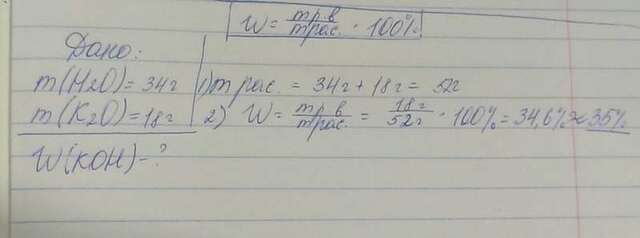 W = m р.в / m рас. · 100%
Дано:
m(H2O)=34г
m(K2O)=18г
W(KOH)-?
1) m рас. = 34г + 18г = 52г
2) W = m р.в / m рас. = 18г / 52г · 100% = 34,6% ≈ 35%